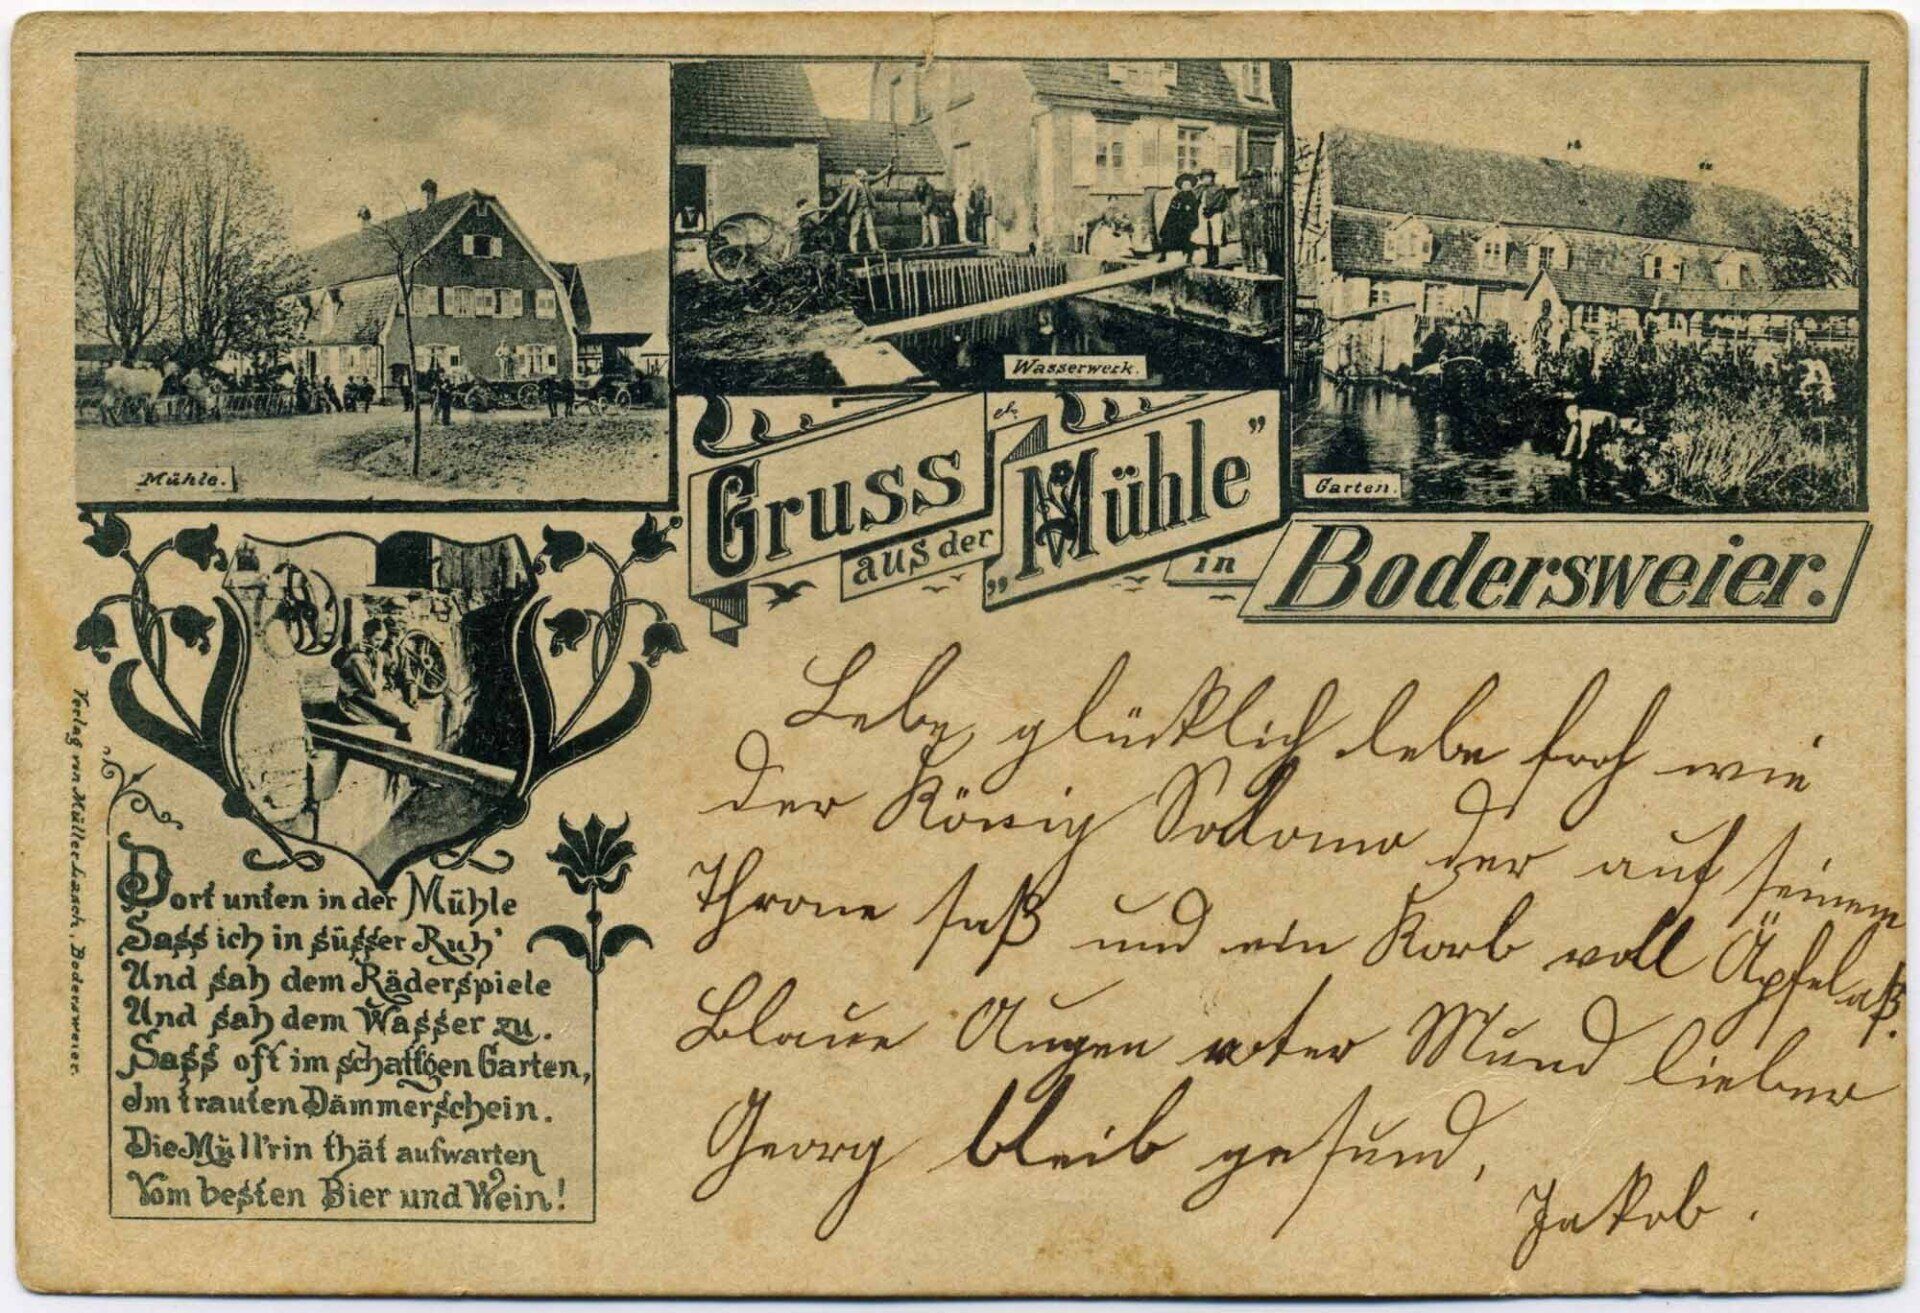 Mühle.
Wasserwerk.
Garten.
Gruss
aus der
„Mühle"
in
Bodersweier.
Verlag von Müller Lasch, Bodersweier.
Dort unten in der Mühle
Sass ich in süsser Ruh'
Und sah dem Räderspiele
Und sah dem Wasser zu.
Sass oft im schattgen Garten,
Im trauten Dämmerschein.
Die Müll'rin thät aufwarten
Vom besten Bier und Wein!
Lebe glücklich lebe froh wie
der König Salomo der auf seinem
Throne saß und ein Korb voll Äpfel aß.
Blaue Augen roter Mund lieber
Georg bleib gesund,
Jakob.